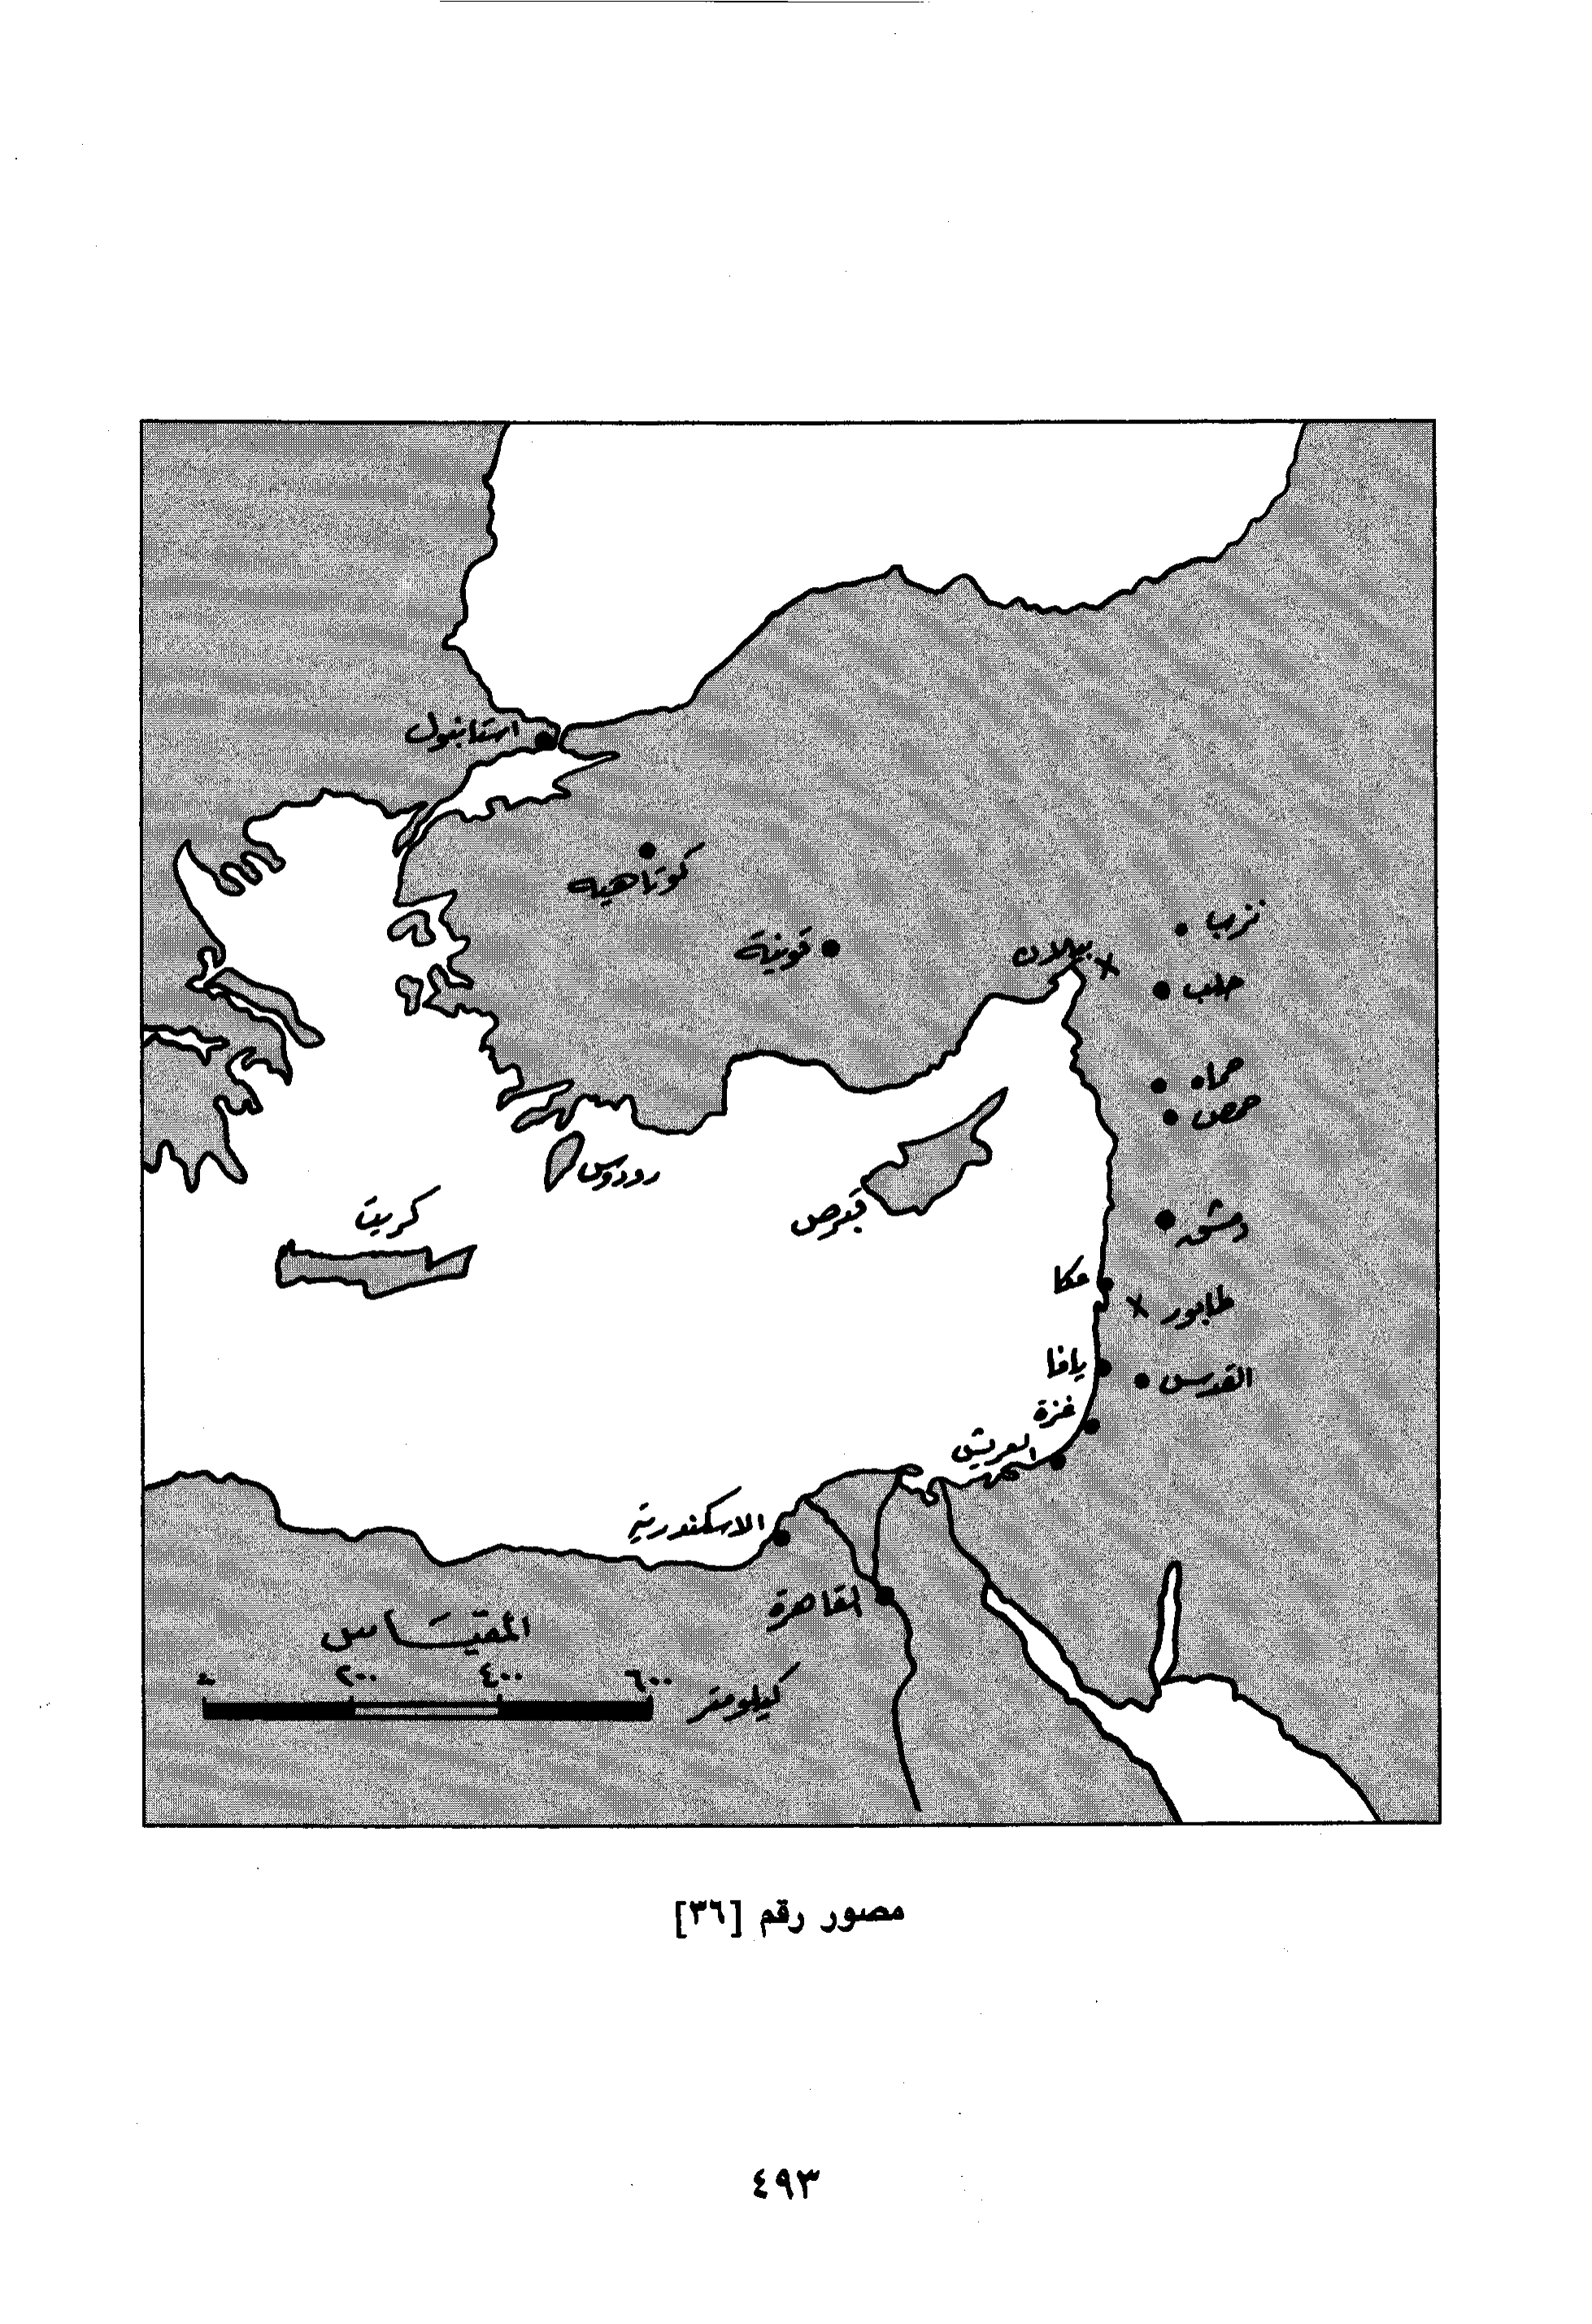 استانبول
كوتاهية
قونية
بيلان
نزب
حلب
حماه
حمص
رودوس
قبرص
كريت
دمشق
عكا
طابور
يافا
القدس
غزة
العريش
الاسكندرية
القاهرة
المقيَاس
٢٠٠ ٤٠٠ ٦٠٠ كيلومتر
مصور رقم [٣٦]
٤٩٣